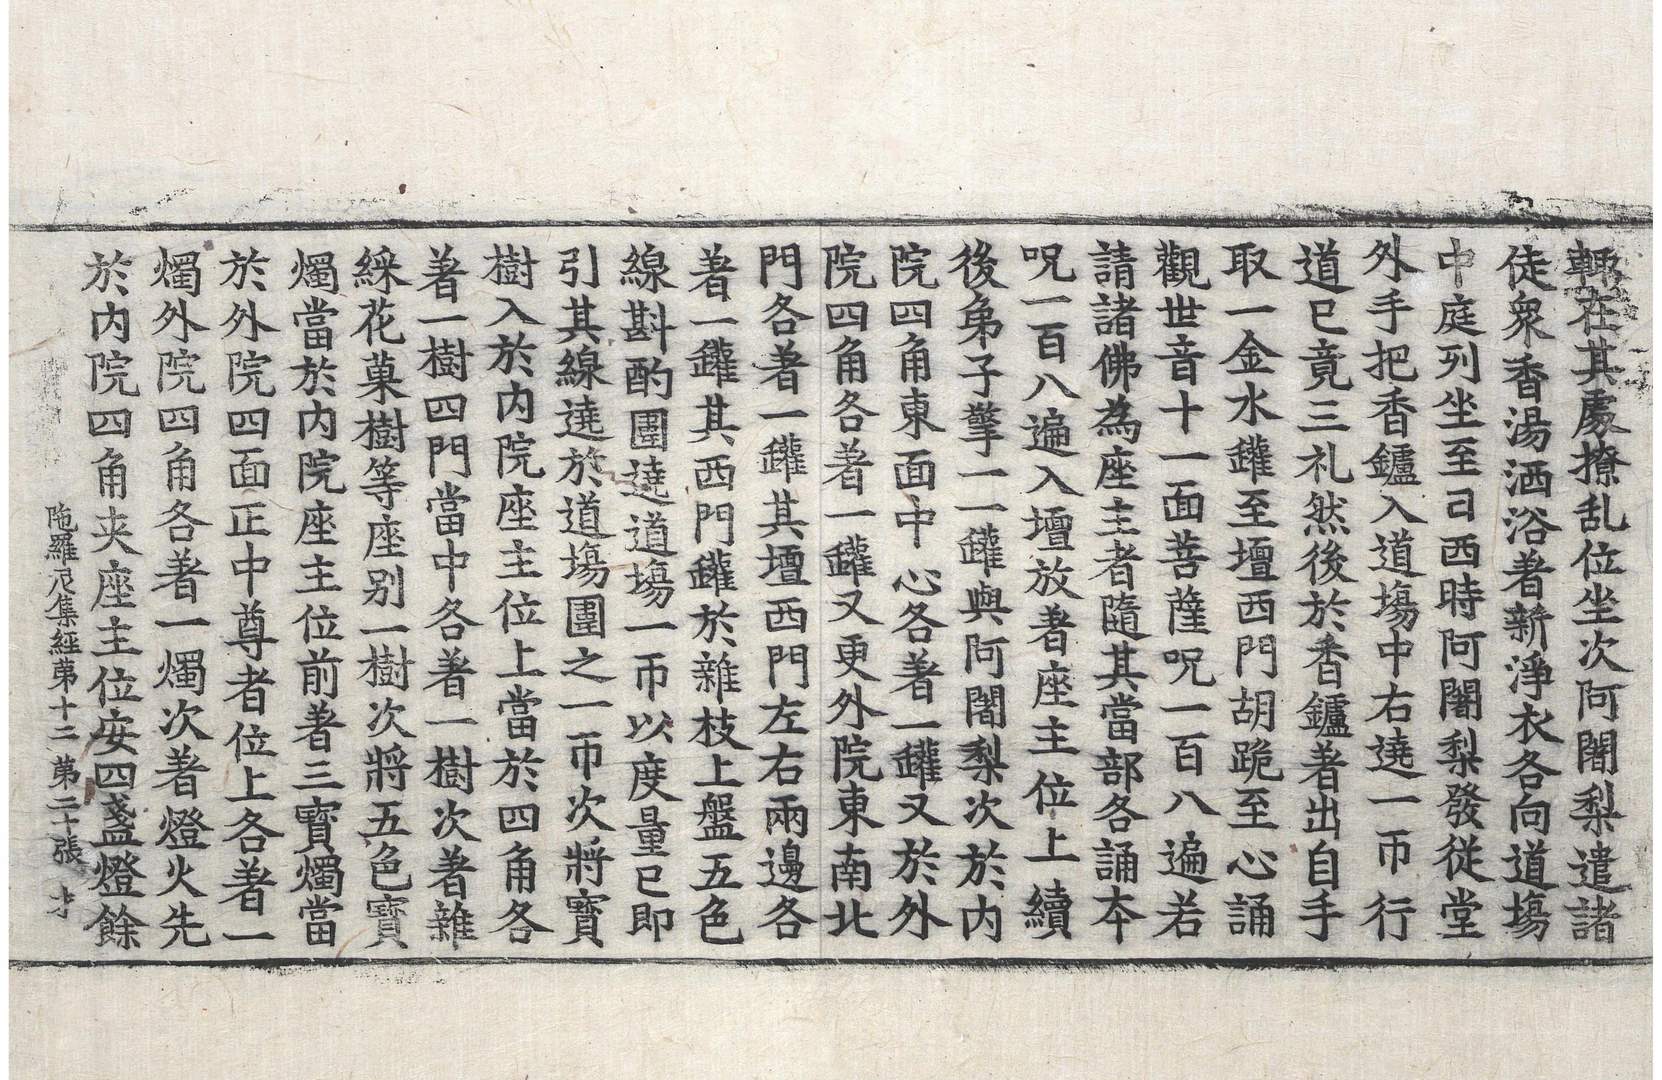 輙在其處撩乱位坐次阿闍梨遣諸
徒衆香湯洒浴著新淨衣各向道塲
中庭列坐至酉時阿闍梨發從堂
外手把香鑪入道塲中右遶一帀行
道已竟三礼然後於香鑪著出自手
取一金水鑵至壇西門胡跪至心誦
觀世音十一面菩薩呪一百八遍若
請諸佛為座主者隨其當部各誦夲
呪一百八遍入壇放著座主位上續
後弟子擎一一鑵與阿闍梨次於内
院四角東面中心各著一鑵又於外
院四角各著一鑵又更外院東南北
門各著一鑵其壇西門左右兩邊各
著一鑵其西門鑵於雜枝上盤五色
線斟酌圍遶道塲一帀以度量已即
引其線遶於道塲圍之一帀次將寳
樹入於内院座主位上當於四角各
著一樹四門當中各著一樹次著雜
綵花菓樹等座别一樹次將五色寳
燭當於内院座主位前著三寳燭當
於外院四面正中尊者位上各著一
燭外院四角各著一燭次著燈火先
於内院四角夾座主位安四盞燈餘
陁羅尼集經苐十二 苐二十張 才